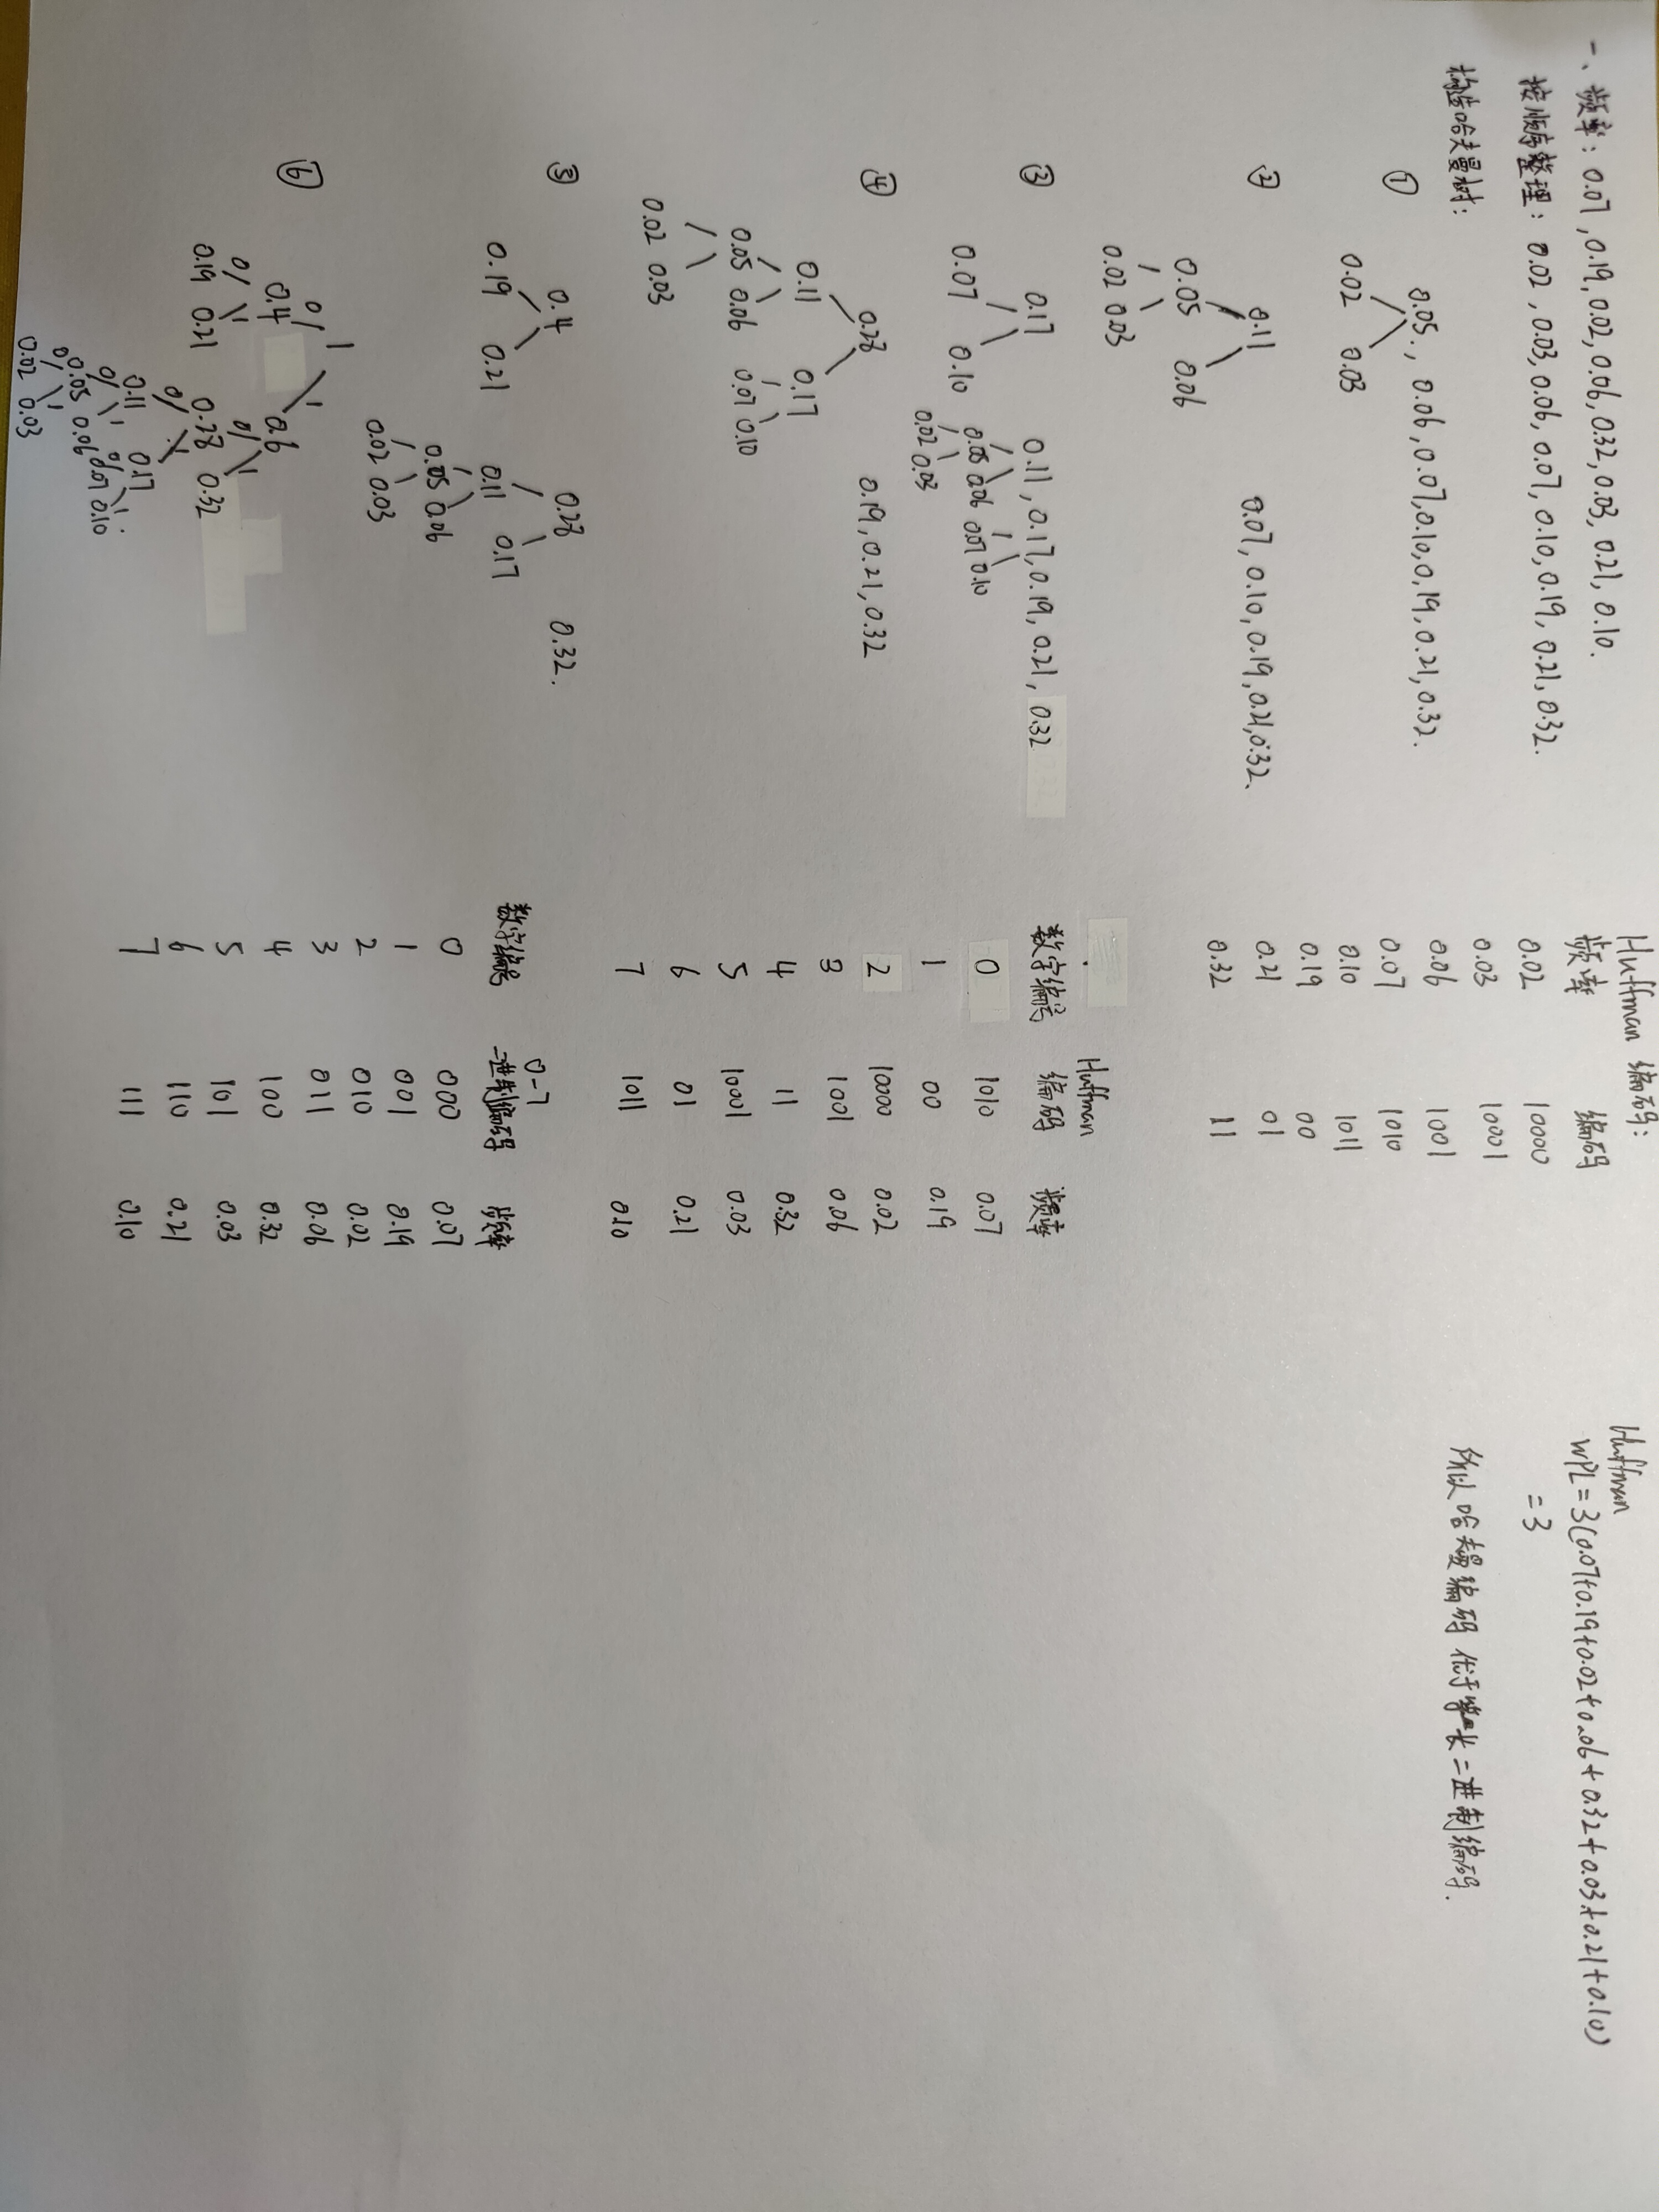 一、频率：0.07,0.19,0.02,0.06,0.32,0.03,0.21,0.10.
按顺序整理：0.02,0.03,0.06,0.07,0.10,0.19,0.21,0.32.
构造哈夫曼树：
① 0.05., 0.06,0.07,0.10,0.19,0.21,0.32.
0.02 0.03
② 0.11 0.07,0.10,0.19,0.21,0.32.
0.05 0.06
0.02 0.03
③ 0.17 0.11,0.17,0.19,0.21,0.32
0.07 0.10 0.05 0.06 0.07 0.10
0.02 0.03
④ 0.28 0.19,0.21,0.32
0.11 0.17
0.05 0.06 0.07 0.10
0.02 0.03
⑤ 0.4 0.28 0.32.
0.19 0.21 0.11 0.17
0.05 0.06
0.02 0.03
⑥ 1
0 1
0.4 0.6
0 1 0 1
0.19 0.21 0.28 0.32
0 1
0.11 0.17
0 1 0 1
0.05 0.06 0.07 0.10
0 1
0.02 0.03
Huffman 编码：
频率 编码
0.02 10000
0.03 10001
0.06 1001
0.07 1010
0.10 1011
0.19 00
0.21 01
0.32 11
Huffman
数字编号 编码 频率
0 1010 0.07
1 00 0.19
2 10000 0.02
3 1001 0.06
4 11 0.32
5 10001 0.03
6 01 0.21
7 1011 0.10
0-7
数字编号 二进制编码 频率
0 000 0.07
1 001 0.19
2 010 0.02
3 011 0.06
4 100 0.32
5 101 0.03
6 110 0.21
7 111 0.10
Huffman
WPL=3(0.07+0.19+0.02+0.06+0.32+0.03+0.21+0.10)
=3
所以哈夫曼编码优于等长二进制编码.